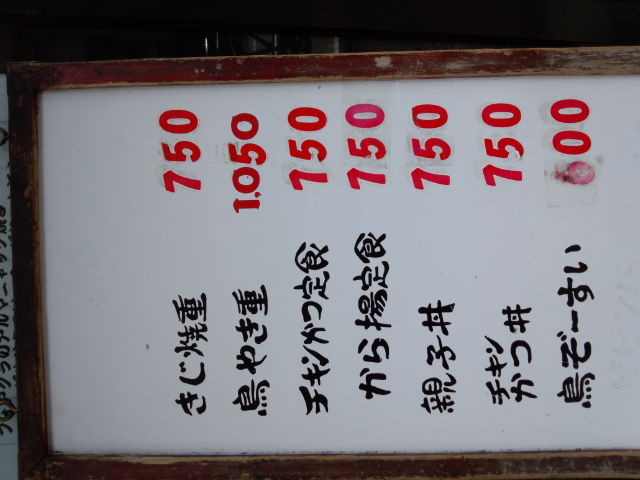 きじ焼重 750
鳥やき重 1,050
チキンかつ定食 750
から揚定食 750
親子丼 750
チキンかつ丼 750
鳥ぞーすい 600